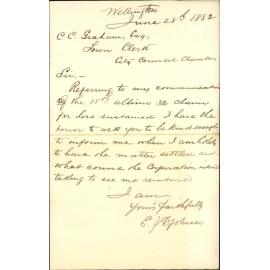 Wellington
June 28th 1882
C.C. Graham, Esq,
Town Clerk
City Council Chambers
Sir,-
Referring to my communication
of the 15th ultimo re claim
for loss sustained I have the
honor to ask you to be kind enough
to inform me when I am likely
to have the matter settled and
what course the Corporation intend
taking to see me reimbursed
I am
Yours faithfully
E.